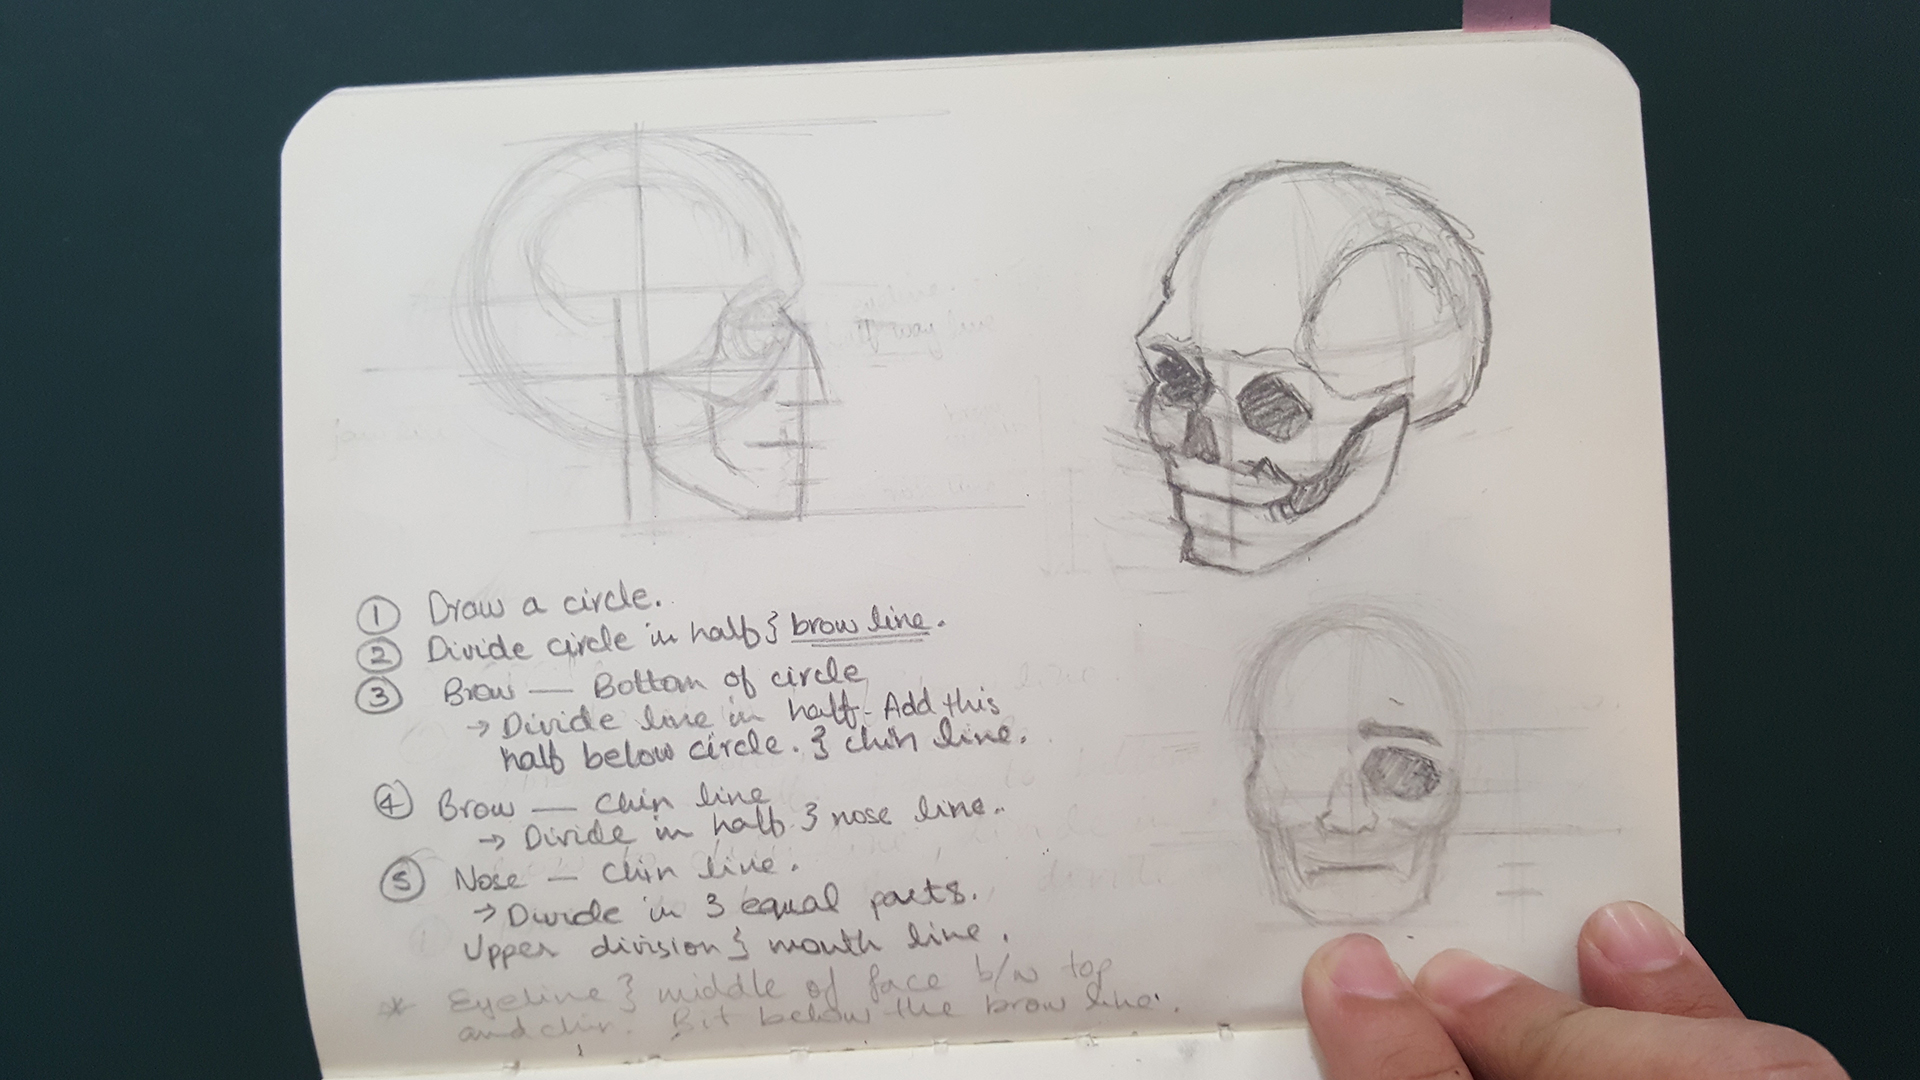 ① Draw a circle.
② Divide circle in half } brow line.
③ Brow — Bottom of circle
→ Divide line in half. Add this
half below circle. } chin line.
④ Brow — Chin line
→ Divide in half } nose line.
⑤ Nose — Chin line.
→ Divide in 3 equal parts.
Upper division } mouth line.
* Eyeline } middle of face b/w top
and chin. Bit below the brow line.